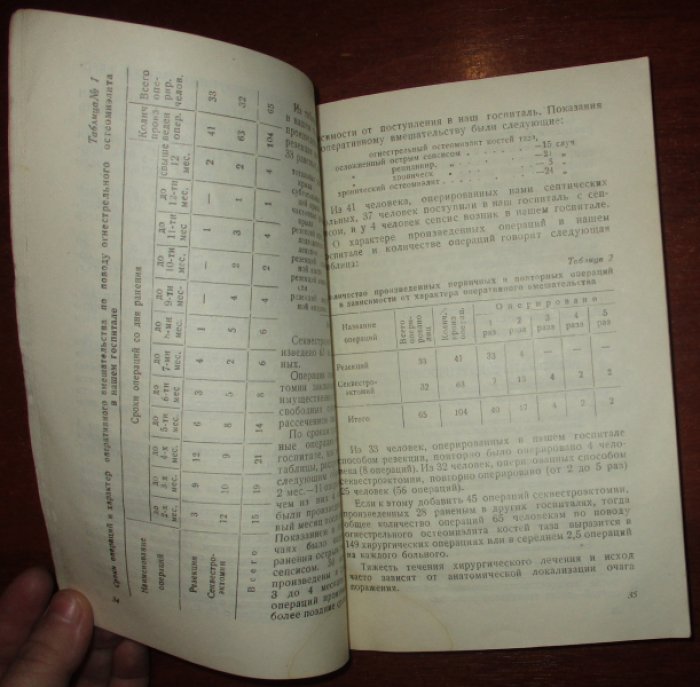 Таблица № 1
Сроки операций и характер оперативного вмешательства по поводу огнестрельного остеомиэлита
в нашем госпитале
Наименование операций
Сроки операций со дня ранения
Колич. произведен. опер.
Всего опе-рир. челов.
до 2-х мес.
до 3-х мес.
до 4-х мес.
до 5-ти мес.
до 6-ти мес.
до 7-ми мес.
до 8-ми мес.
до 9-ти мес.
до 10-ти мес.
до 11-ти мес.
до 12-ти мес.
свыше 12 мес.
Резекции 3 9 12 6 3 4 1 — — 1 — 2 41 33
Секвестро-эктомии 12 10 9 8 5 2 5 4 2 3 1 2 63 32
Всего 15 19 21 14 8 6 6 4 2 4 1 4 104 65
Из
в нашем
38
Секвестр
изведено 4
ных.
Операция
томия заклю
имущественно
свободных
рассечения
По срокам
ные операц
госпитале, как
таблицы, рас
следующим об
2 мес.—11
чем из них 4
были произве
вый месяц после
Показанием к
чаях было
ранения остры
сепсисом. 30
произведены в
3 до 4 месяцев
операций произ
более поздние ср
симости от поступления в наш госпиталь. Показания
оперативному вмешательству были следующие:
огнестрельный остеомиэлит костей таза,
осложненный острым сепсисом . . . . —15 случ.
рецидивир. „ . . . . —21 „
хроническ. „ . . . . — 5 „
хронический остеомиэлит . . . . —24 „
Из 41 человека, оперированных нами септических
больных, 37 человек поступили в наш госпиталь с сеп-
сисом, и у 4 человек сепсис возник в нашем госпитале.
О характере произведенных операций в нашем
госпитале и количестве операций говорит следующая
таблица:
Таблица 2
Количество произведенных первичных и повторных операций
в зависимости от характера оперативного вмешательства
Название операций
Всего опери-ровано лиц
Колич. произв. операц.
Оперировано
1 раз
2 раза
3 раза
4 раза
5 раз
Резекций 33 41 33 4 — — —
Секвестро-эктомий 32 63 7 13 4 2 2
Итого 65 104 40 17 4 2 2
Из 33 человек, оперированных в нашем госпитале
способом резекции, повторно было оперировано 4 чело-
века (8 операций). Из 32 человек, оперированных способом
секвестроэктомии, повторно оперировано (от 2 до 5 раз)
25 человек (56 операций).
Если к этому добавить 45 операций секвестроэктомии,
произведенных 28 раненым в других госпиталях, тогда
общее количество операций 65 человекам по поводу
огнестрельного остеомиэлита костей таза выразится в
149 хирургических операциях или в середнем 2,5 операций
на каждого больного.
Тяжесть течения хирургического лечения и исход
часто зависят от анатомической локализации очага
поражения.
35